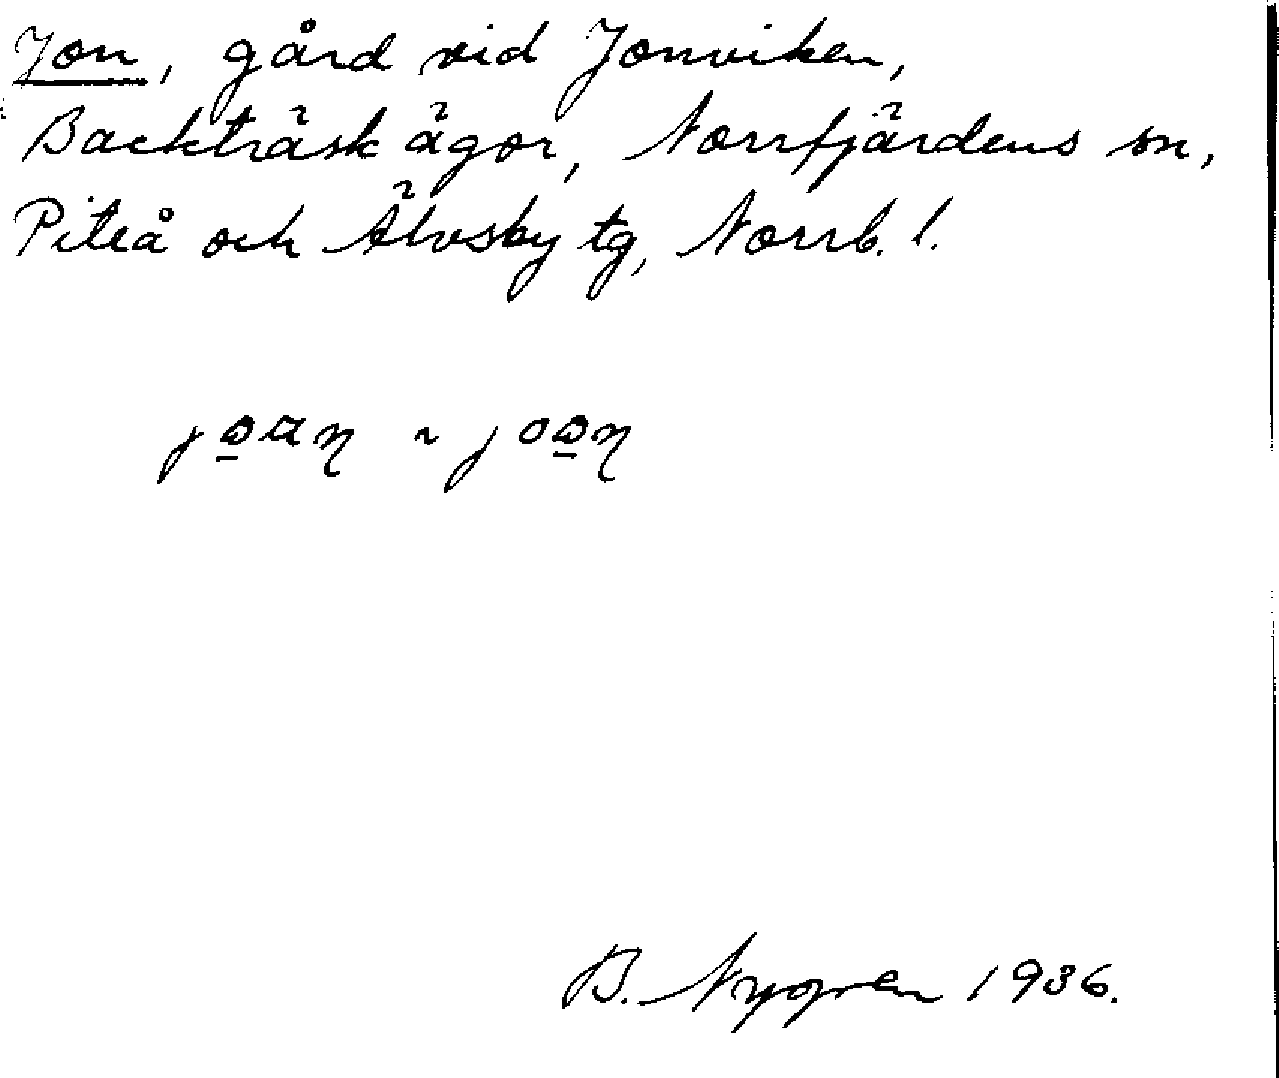 Jon, gård vid Jonviken,
Backträsk ägor, Norrfjärdens sn,
Piteå och Älvsby tg, Norrb. l.
B. Nygren 1936.